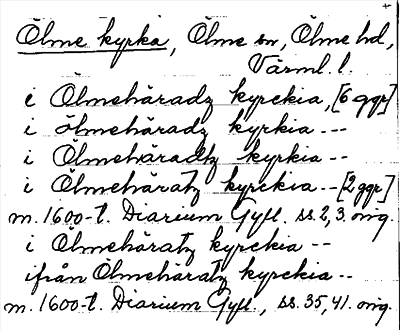 Ölme kyrka, Ölme sn, Ölme hd,
Värml. l.
i Ölmehäradz kyrckia, [6 ggr]
i ölmehäradz kyrkia --
i Ölmehäradtz kyrkia --
i Ölmehäratz kyrckia -- [2 ggr]
m. 1600-t. Diarium Gyll. ss. 2, 3. orig.
i Ölmehäratz kyrckia --
ifrån Ölmehäratz kyrckia --
m. 1600-t. Diarium Gyll., ss. 35, 41. orig.